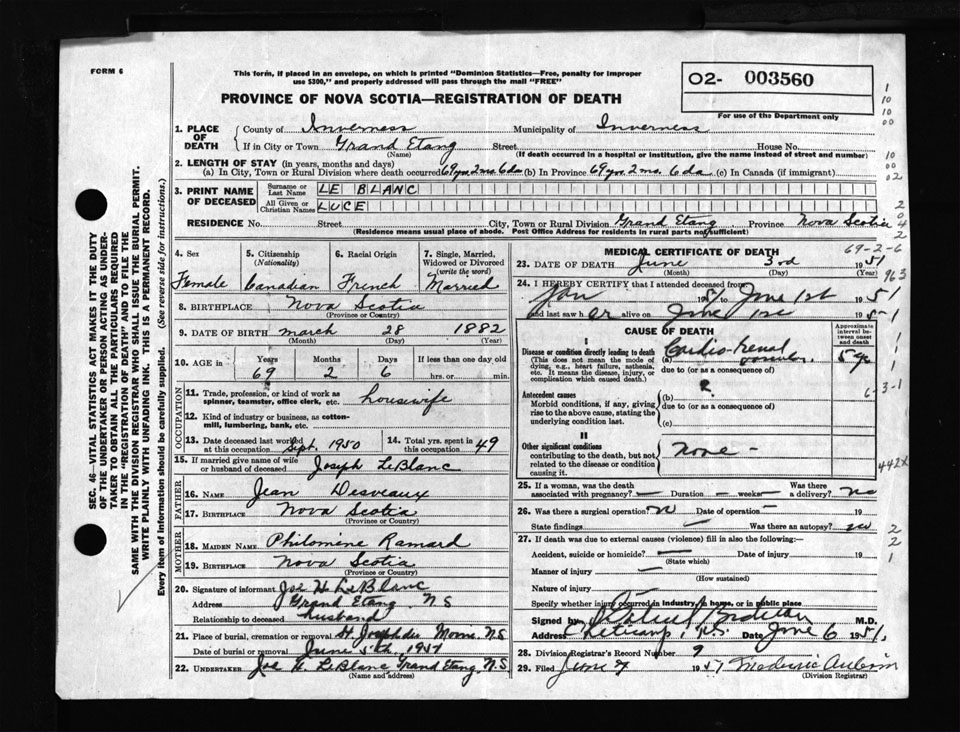 FORM 6
This form, if placed in an envelope, on which is printed "Dominion Statistics—Free, penalty for improper
use $300," and properly addressed will pass through the mail "FREE"
PROVINCE OF NOVA SCOTIA—REGISTRATION OF DEATH
02- 003560
For use of the Department only
SEC. 46—VITAL STATISTICS ACT MAKES IT THE DUTY
OF THE UNDERTAKER OR PERSON ACTING AS UNDER-
TAKER TO OBTAIN ALL THE PARTICULARS REQUIRED
IN THE "REGISTRATION OF DEATH" AND TO FILE THE
SAME WITH THE DIVISION REGISTRAR WHO SHALL ISSUE THE BURIAL PERMIT.
WRITE PLAINLY WITH UNFADING INK. THIS IS A PERMANENT RECORD.
Every item of information should be carefully supplied. (See reverse side for instructions.)
1. PLACE OF DEATH County of Inverness Municipality of Inverness
If in City or Town Grand Etang Street House No.
(Name) (If death occurred in a hospital or institution, give the name instead of street and number)
2. LENGTH OF STAY (in years, months and days)
(a) In City, Town or Rural Division where death occurred 69 yrs 2 ms. 6 da (b) In Province 69 yrs 2 ms. 6 da (c) In Canada (if immigrant)
3. PRINT NAME OF DECEASED Surname or Last Name LE BLANC
All Given or Christian Names LUCE
RESIDENCE No. Street City, Town or Rural Division Grand Etang Province Nova Scotia
(Residence means usual place of abode. Post Office Address for residents in rural parts not sufficient)
4. Sex 5. Citizenship (Nationality) 6. Racial Origin 7. Single, Married, Widowed or Divorced (write the word)
Female Canadian French Married
8. BIRTHPLACE Nova Scotia
(Province or Country)
9. DATE OF BIRTH March 28 1882
(Month) (Day) (Year)
10. AGE in Years Months Days If less than one day old
69 2 6 hrs. or min.
OCCUPATION
11. Trade, profession, or kind of work as spinner, teamster, office clerk, etc. housewife
12. Kind of industry or business, as cotton-mill, lumbering, bank, etc.
13. Date deceased last worked at this occupation Sept. 1950 14. Total yrs. spent in 49
15. If married give name of wife or husband of deceased Joseph LeBlanc
FATHER
16. NAME Jean Desveaux
17. BIRTHPLACE Nova Scotia
(Province or Country)
MOTHER
18. MAIDEN NAME Philomène Ramard
19. BIRTHPLACE Nova Scotia
(Province or Country)
20. Signature of informant Joe H LeBlanc
Address Grand Etang N S
Relationship to deceased husband
21. Place of burial, cremation or removal St. Joseph du Moine N.S
Date of burial or removal June 5th, 1951
22. UNDERTAKER Joe H. LeBlanc Grand Etang N.S.
(Name and address)
MEDICAL CERTIFICATE OF DEATH 69-2-6
23. DATE OF DEATH June 3rd 1951
(Month) (Day) (Year)
24. I HEREBY CERTIFY that I attended deceased from
Jan 1951 to June 1st 1951
and last saw her alive on June 1st 1951
CAUSE OF DEATH Approximate interval between onset and death
I
Disease or condition directly leading to death (a) Cardio-renal
(This does not mean the mode of dying, e.g., heart failure, asthenia, etc. It means the disease, injury, or complication which caused death.) due to (or as a consequence of)
Antecedent causes (b)
Morbid conditions, if any, giving rise to the above cause, stating the underlying condition last. due to (or as a consequence of)
(c)
II
Other significant conditions contributing to the death, but not related to the disease or condition causing it. None -
442X
25. If a woman, was the death associated with pregnancy? — Duration — weeks — Was there a delivery? no
26. Was there a surgical operation? no Date of operation 19
State findings Was there an autopsy? no
27. If death was due to external causes (violence) fill in also the following:—
Accident, suicide or homicide? Date of injury 19
(State which)
Manner of injury
(How sustained)
Nature of injury
Specify whether injury occurred in Industry, in home, or in public place
Signed by M.D.
Address Cheticamp, N.S. Date June 6 1951
28. Division Registrar's Record Number 9
29. Filed June 1951
(Division Registrar)